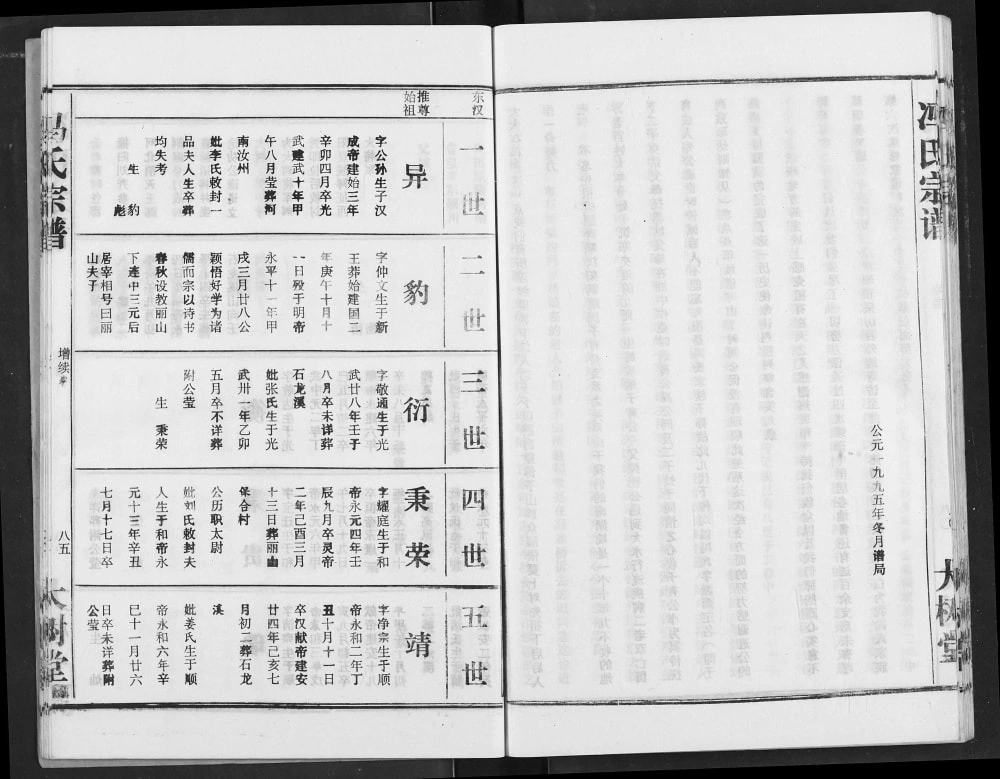 冯氏宗谱
公元一九九五年冬月谱局
大树堂
东汉
推尊
始祖
一世
异
字公孙生于汉
成帝建始三年
辛卯四月卒光
武建武十年甲
午八月莹葬河
南汝州
妣李氏敕封一
品夫人生卒葬
均失考
生 豹
彪
二世
豹
字仲文生于新
王莽始建国二
年庚午十月十
一日殁于明帝
永平十一年甲
戌三月廿八公
颖悟好学为诸
儒而宗以诗书
春秋设教丽山
下连中三元后
居宰相号曰丽
山夫子
三世
衍
字敬通生于光
武廿八年壬子
八月卒未详葬
石龙溪
妣张氏生于光
武卅一年乙卯
五月卒不详葬
附公莹
生 秉荣
四世
秉荣
字耀庭生于和
帝永元四年壬
辰九月卒灵帝
二年己酉三月
十三日葬丽山
保合村
公历职太尉
妣刘氏敕封夫
人生于和帝永
元十三年辛丑
七月十七日卒
五世
靖
字净宗生于顺
帝永和二年丁
丑十月十一日
卒汉献帝建安
廿四年己亥七
月初二葬石龙
溪
妣姜氏生于顺
帝永和六年辛
巳十一月廿六
日卒未详葬附
公莹
冯氏宗谱
增续
八五
大树堂